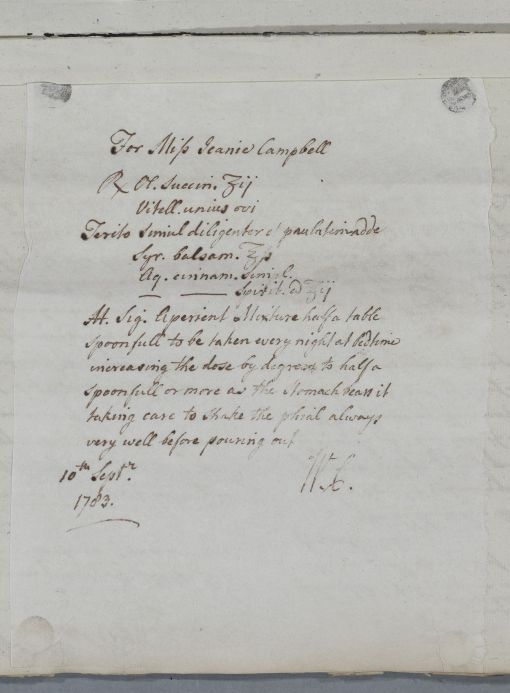 For Miss Jeanie Campbell
℞ Ol. Succin. ʒij
Vitell. unius ovi
Terito simul diligenter et paulatim adde
Syr. balsam. ℥ß
Aq. cinnam. simpl.
— —— Spirit. a ℥ij
M. Sig. Aperient Mixture half a table
spoonfull to be taken every night at bedtime
increasing the dose by degrees to half a
spoonfull or more as the stomach bears it
taking care to shake the phial always
very well before pouring out
10th Septr.
1783.